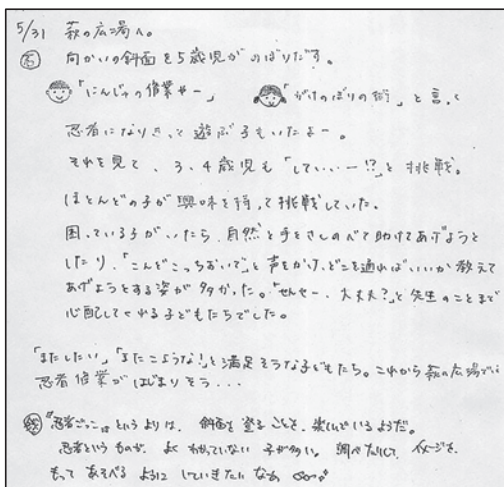 5/31 萩の広場へ。
向かいの斜面を5歳児がのぼりだす。
「にんじゃの修業やー」 「がけのぼりの術」と言って
忍者になりきって遊ぶ子もいたよー。
それを見て、3、4歳児も「していいー!?」と挑戦。
ほとんどの子が興味を持って挑戦していた。
困っている子がいたら、自然と手をさしのべて助けてあげようと
したり、「こんどこっちおいで」と声をかけ、どこを通ればいいか教えて
あげようとする姿が多かった。「せんせー、大丈夫?」と先生のことまで
心配してくれる子どもたちでした。
「またしたい」「またこようなー!」と満足そうな子どもたち。これから萩の広場での
忍者修業がはじまりそう...
"忍者ごっこ"というよりは、斜面を登ることを、楽しんでいるようだ。
忍者というものが、よくわかっていない子が多い。調べたりして、イメージを
もってあそべるようにしていきたいなぁ